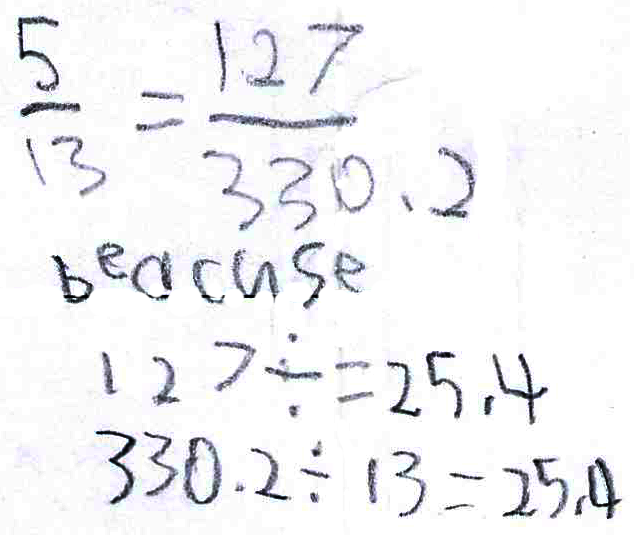 5/13 = 127/330.2
beacuse
127÷=25.4
330.2÷13=25.4